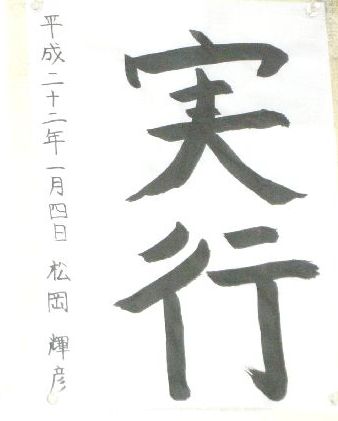 実行
平成二十二年一月四日 松岡 輝彦